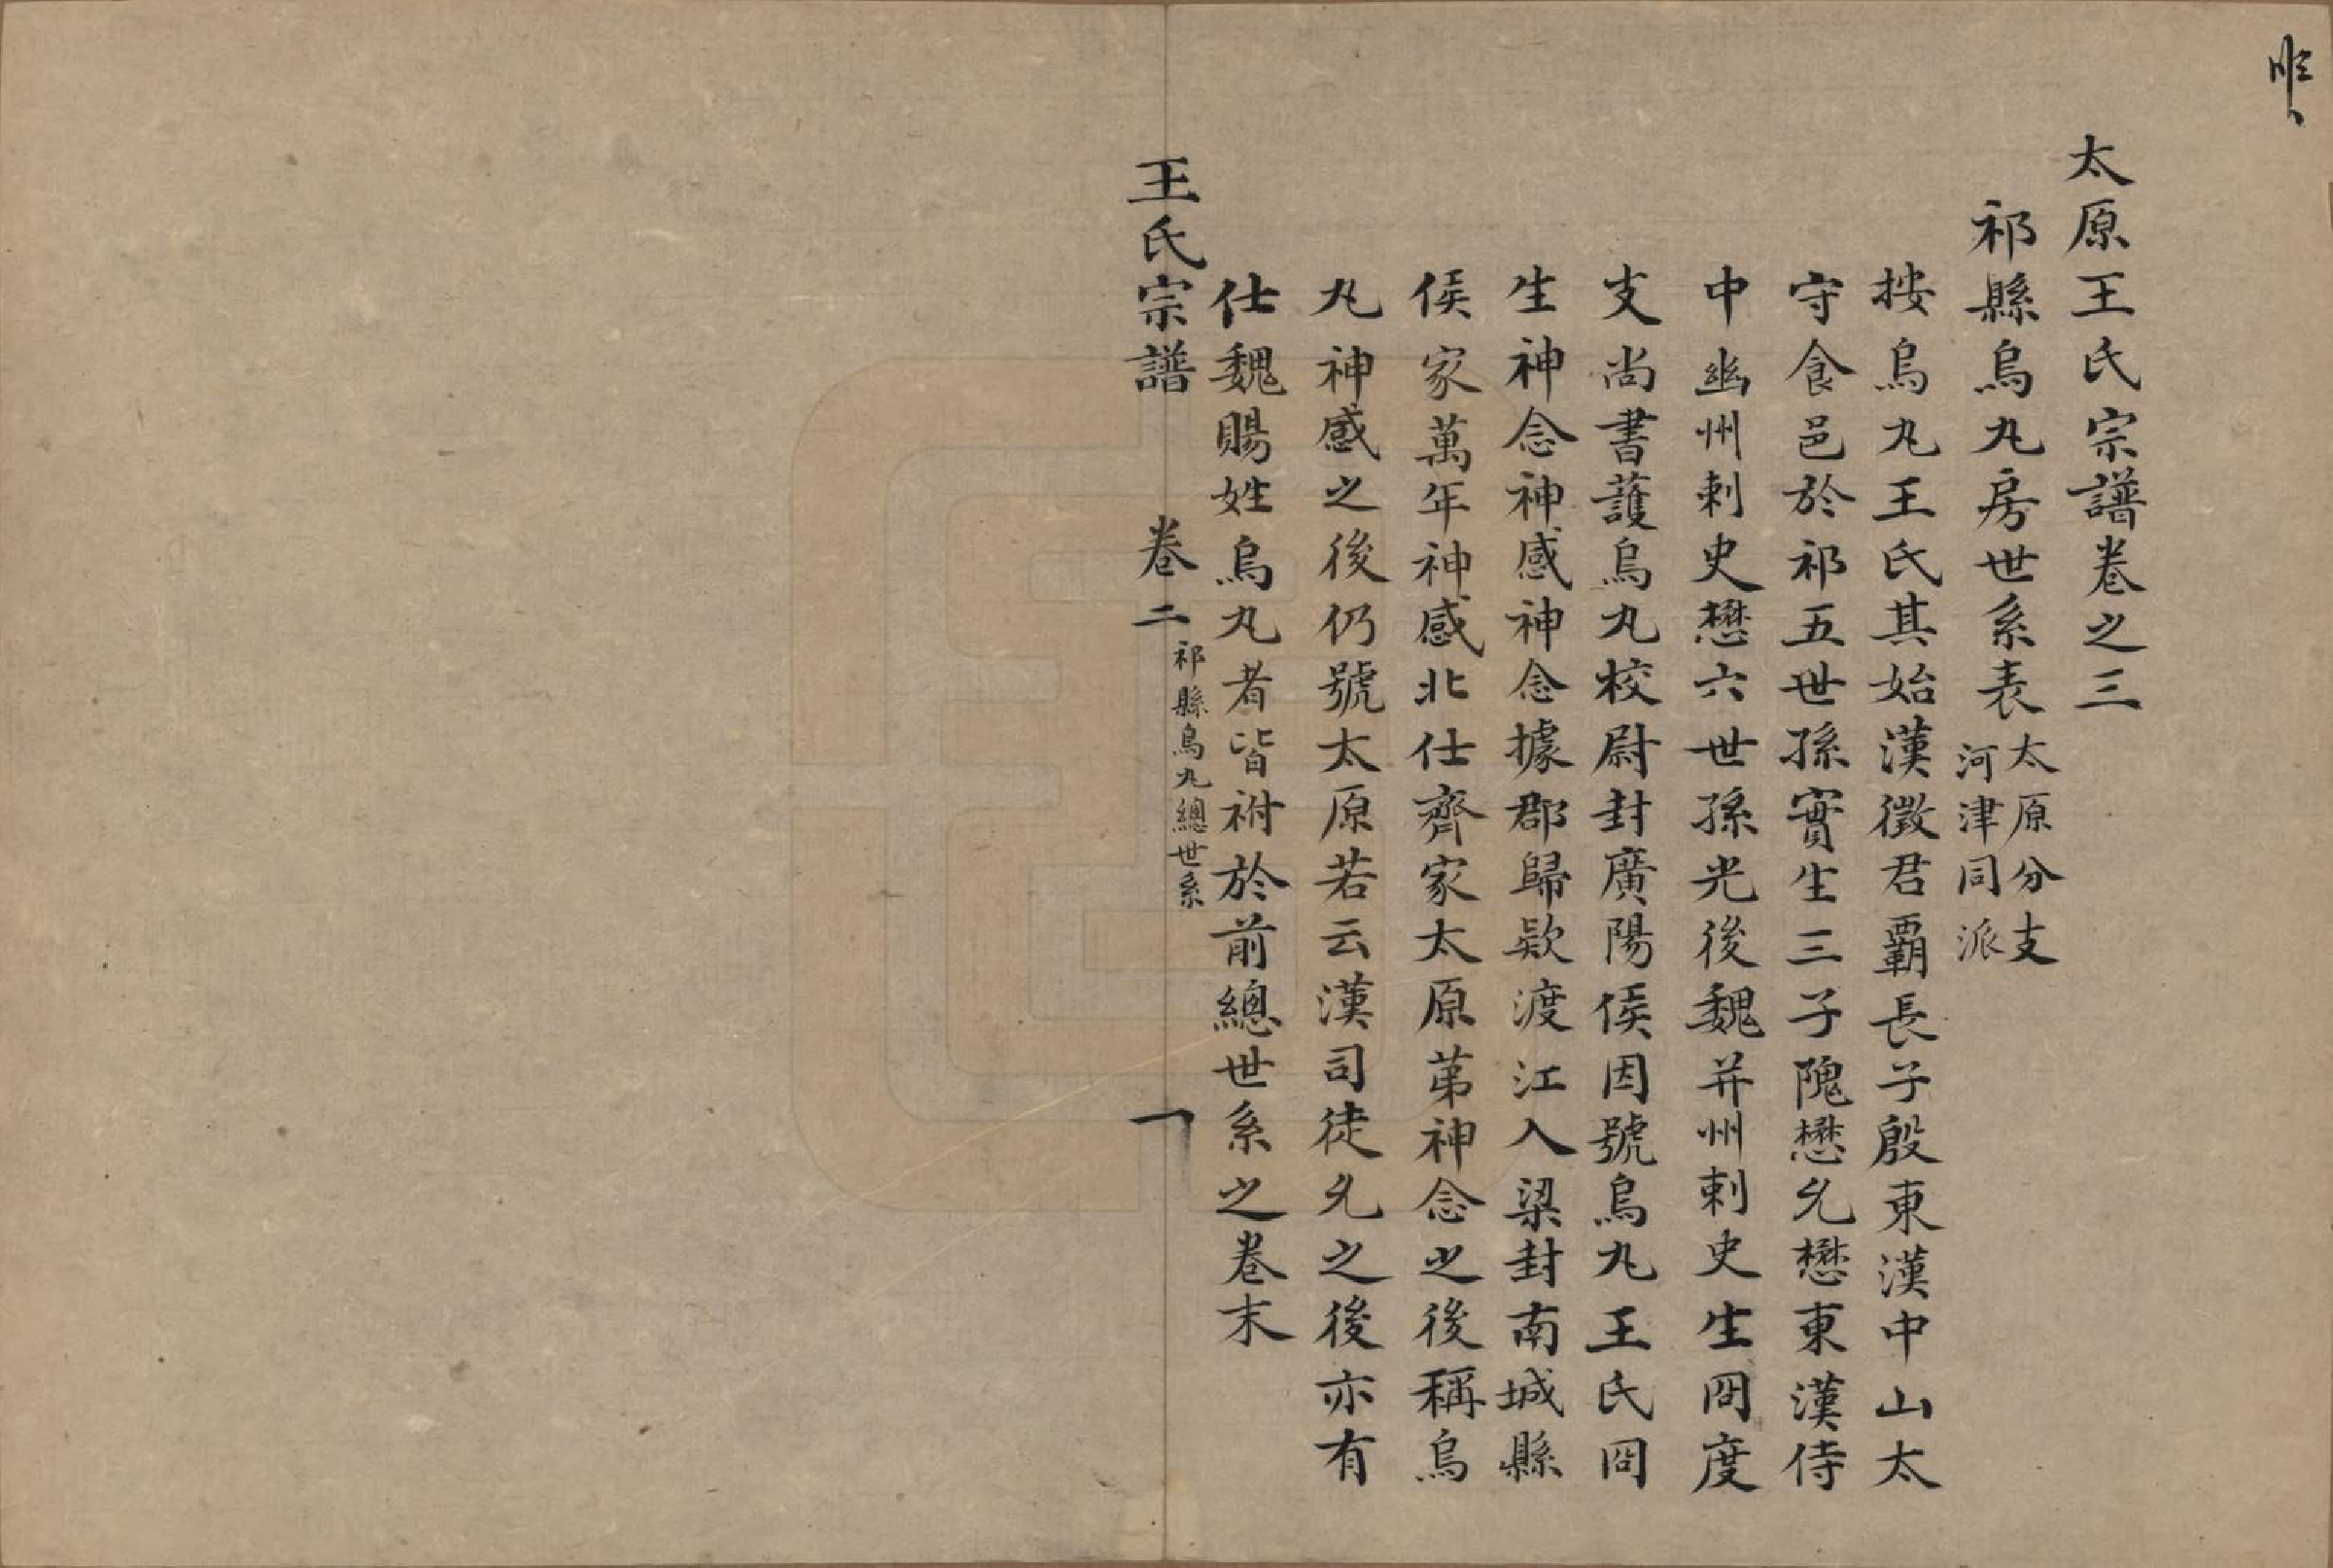 太原王氏宗譜卷之三
祁縣烏丸房世系表 太原分支
河津同派
按烏丸王氏其始漢徵君霸長子殷東漢中山太
守食邑於祁五世孫實生三子隗懋允懋東漢侍
中幽州刺史懋六世孫光後魏并州刺史生冏度
支尚書護烏丸校尉封廣陽侯因號烏丸王氏冏
生神念神感神念據郡歸欵渡江入梁封南城縣
侯家萬年神感北仕齊家太原苐神念之後稱烏
丸神感之後仍號太原若云漢司徒允之後亦有
仕魏賜姓烏丸者皆祔於前總世系之卷末
王氏宗譜 卷二 祁縣烏丸總世系 一